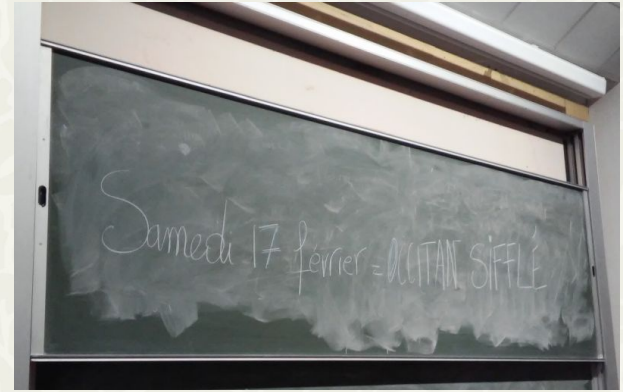 Samedi 17 février = OCCITAN SiFFLÉ